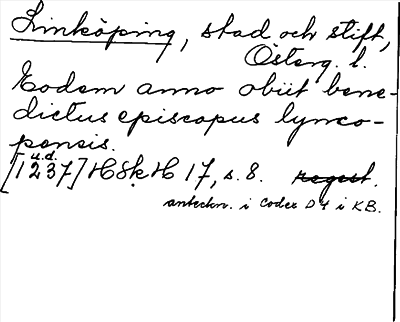 Linköping, stad och stift,
Österg. l.
Eodem anno obiit bene-
dictus episcopus lynco-
pensis.
u.d.
[1237] HSkH 17, s. 8. regest.
anteckn. i Codex D 4 i KB.